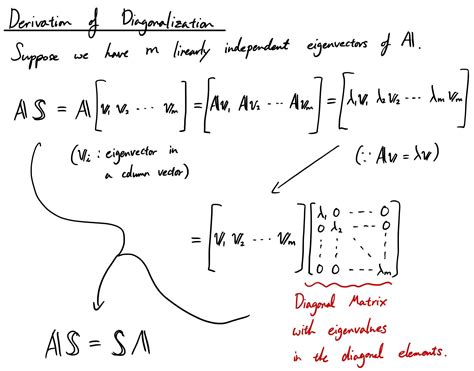 Derivation of Diagonalization
Suppose we have m linearly independent eigenvectors of A.
AS = A[v₁ v₂ ⋯ vₘ] = [Av₁ Av₂ ⋯ Avₘ] = [λ₁v₁ λ₂v₂ ⋯ λₘvₘ]
(vᵢ : eigenvector in
a column vector)
(∵ Av = λv)
= [v₁ v₂ ⋯ vₘ] [λ₁ 0 ---- 0
0 λ₂ --- 0
0 0 ---- λₘ]
Diagonal Matrix
with eigenvalues
in the diagonal elements.
AS = SΛ